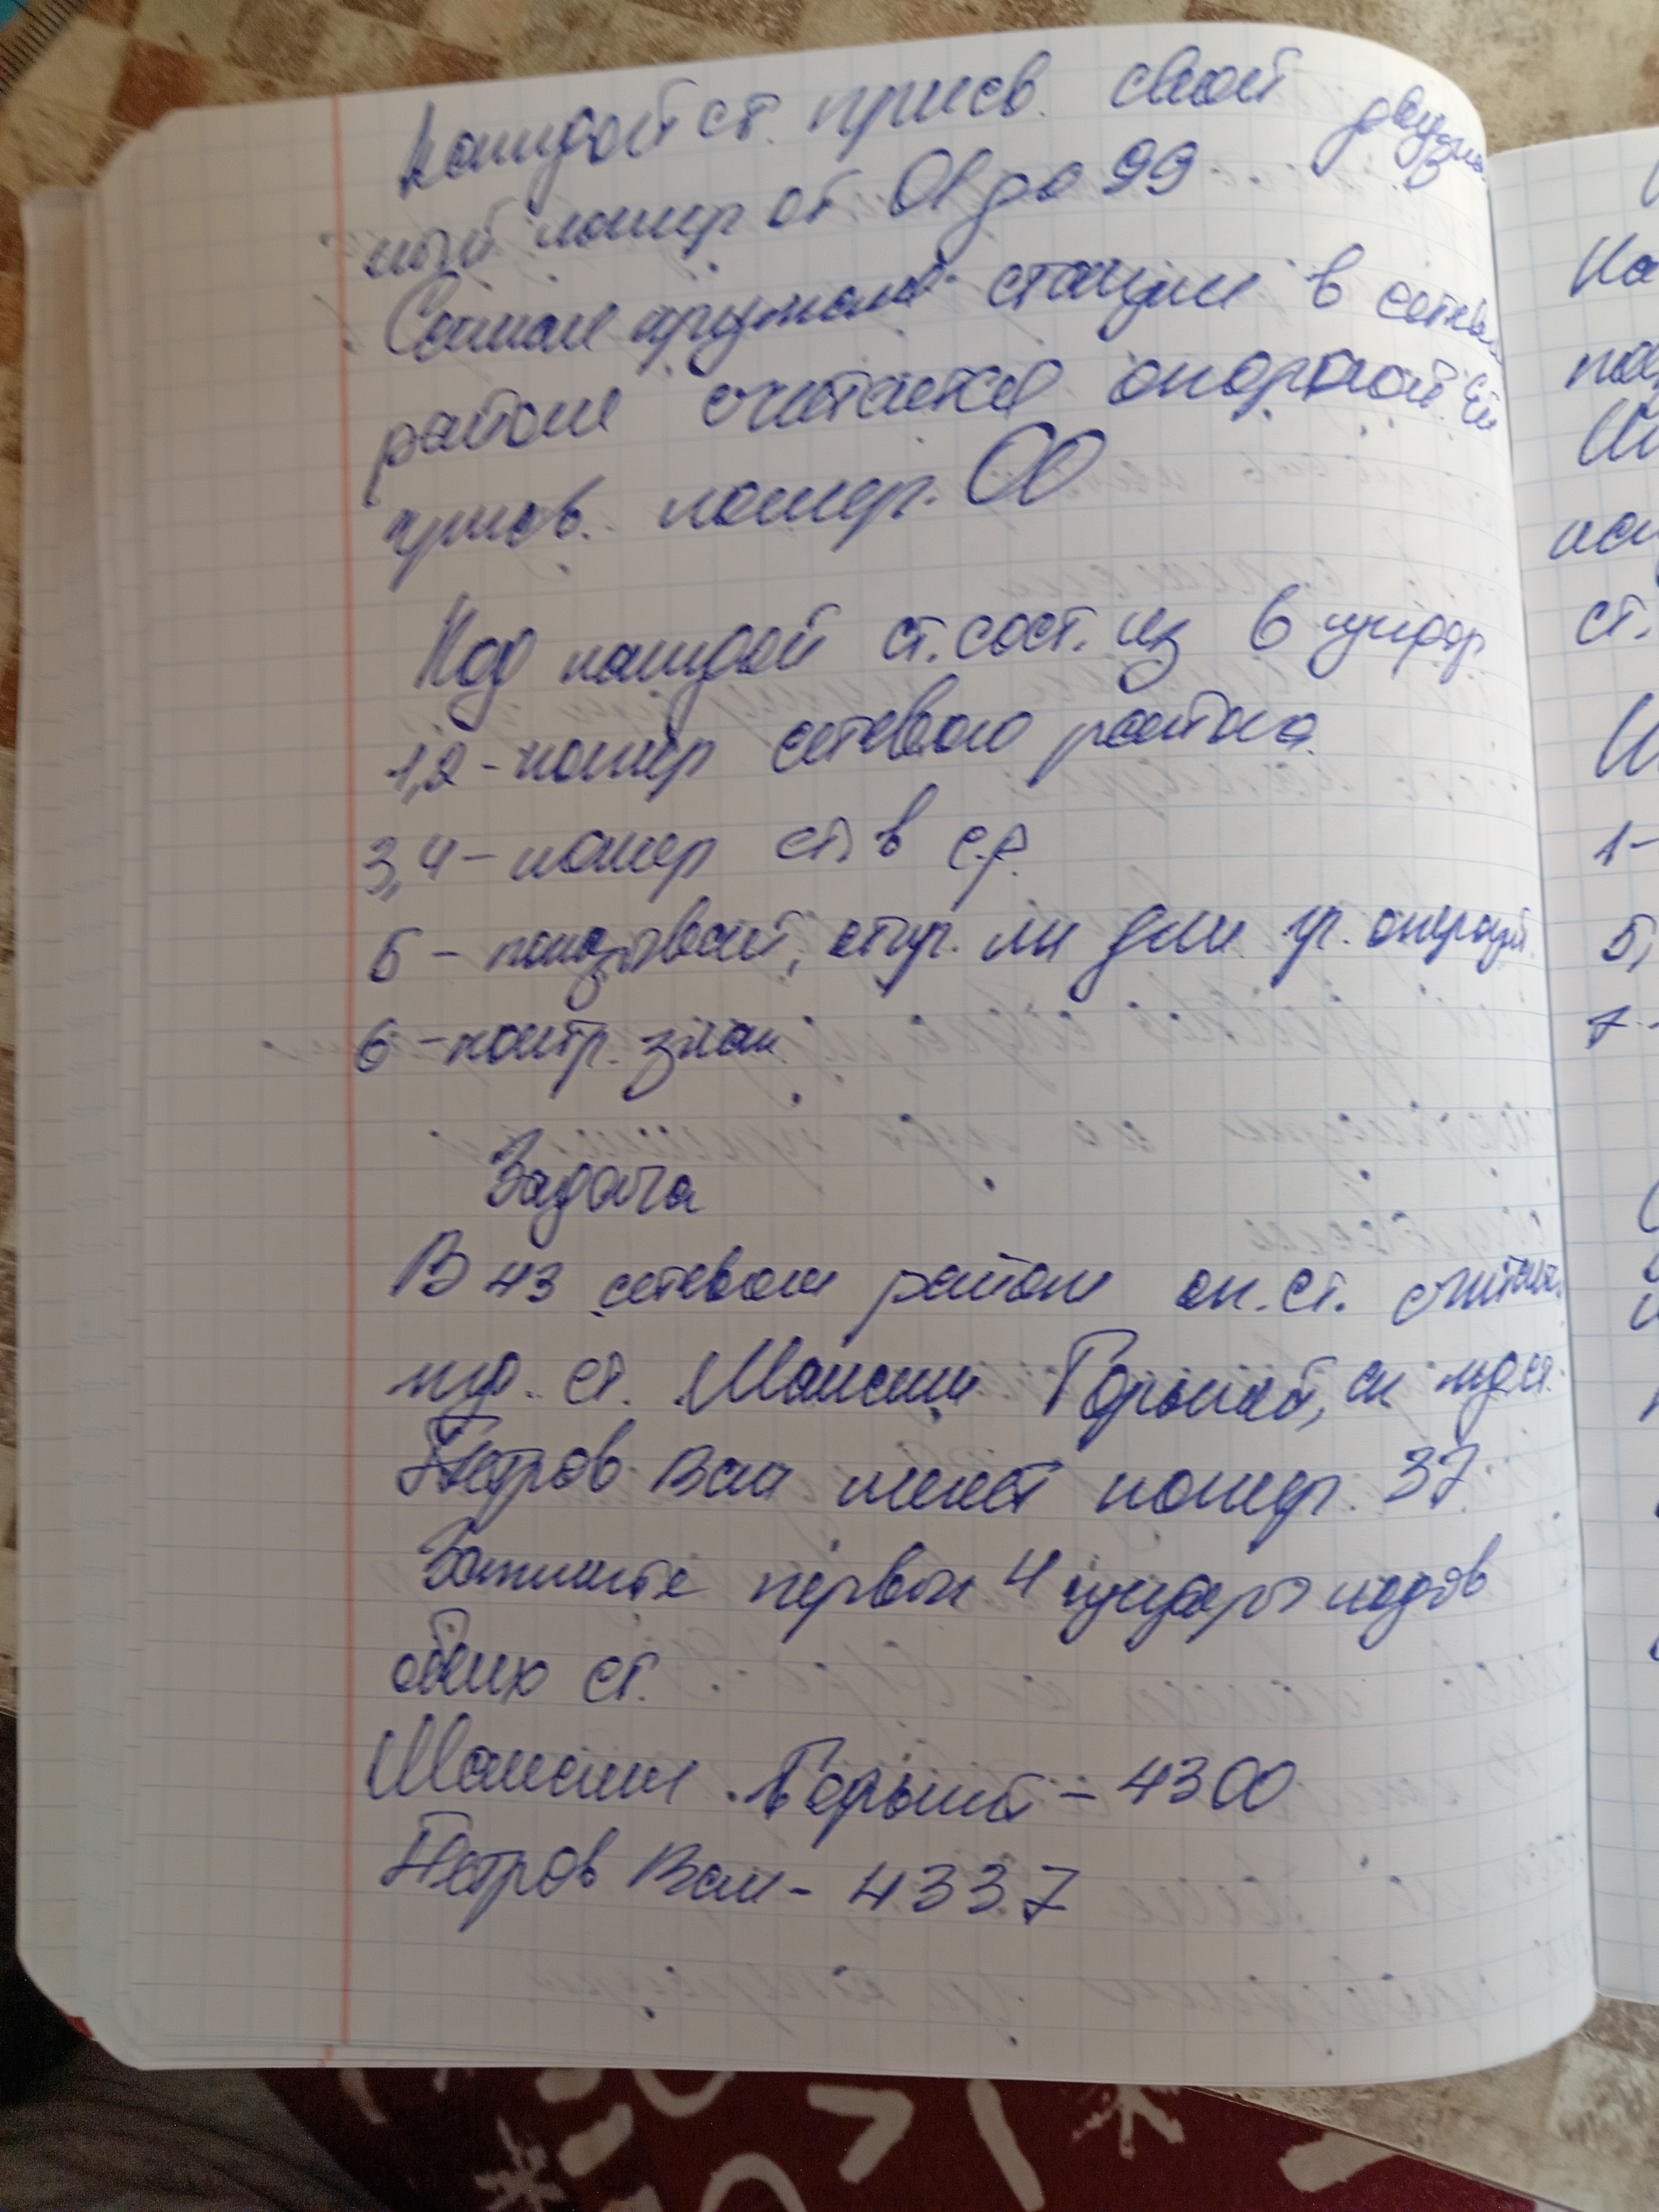 Каждой ст. присв. свой двузнач
ный номер от 01 до 99
Самая крупная станция в сетевом
районе считается опорной. Ей
присв. номер. 00
Код каждой ст. сост. из 6 цифр
1,2 - номер сетевого района.
3,4 - номер ст. в с.р.
5 - показывает, откр. ли для гр. операций.
6 - контр. знак
Задача
В 43 сетевом районе оп. ст. считается
ст. Максим Горький,
Петров Вал имеет номер. 37
Запишите первые 4 цифры кодов
обеих ст.
Максим Горький - 4300
Петров Вал - 4337
На
ст.
1 -
5,
7 -